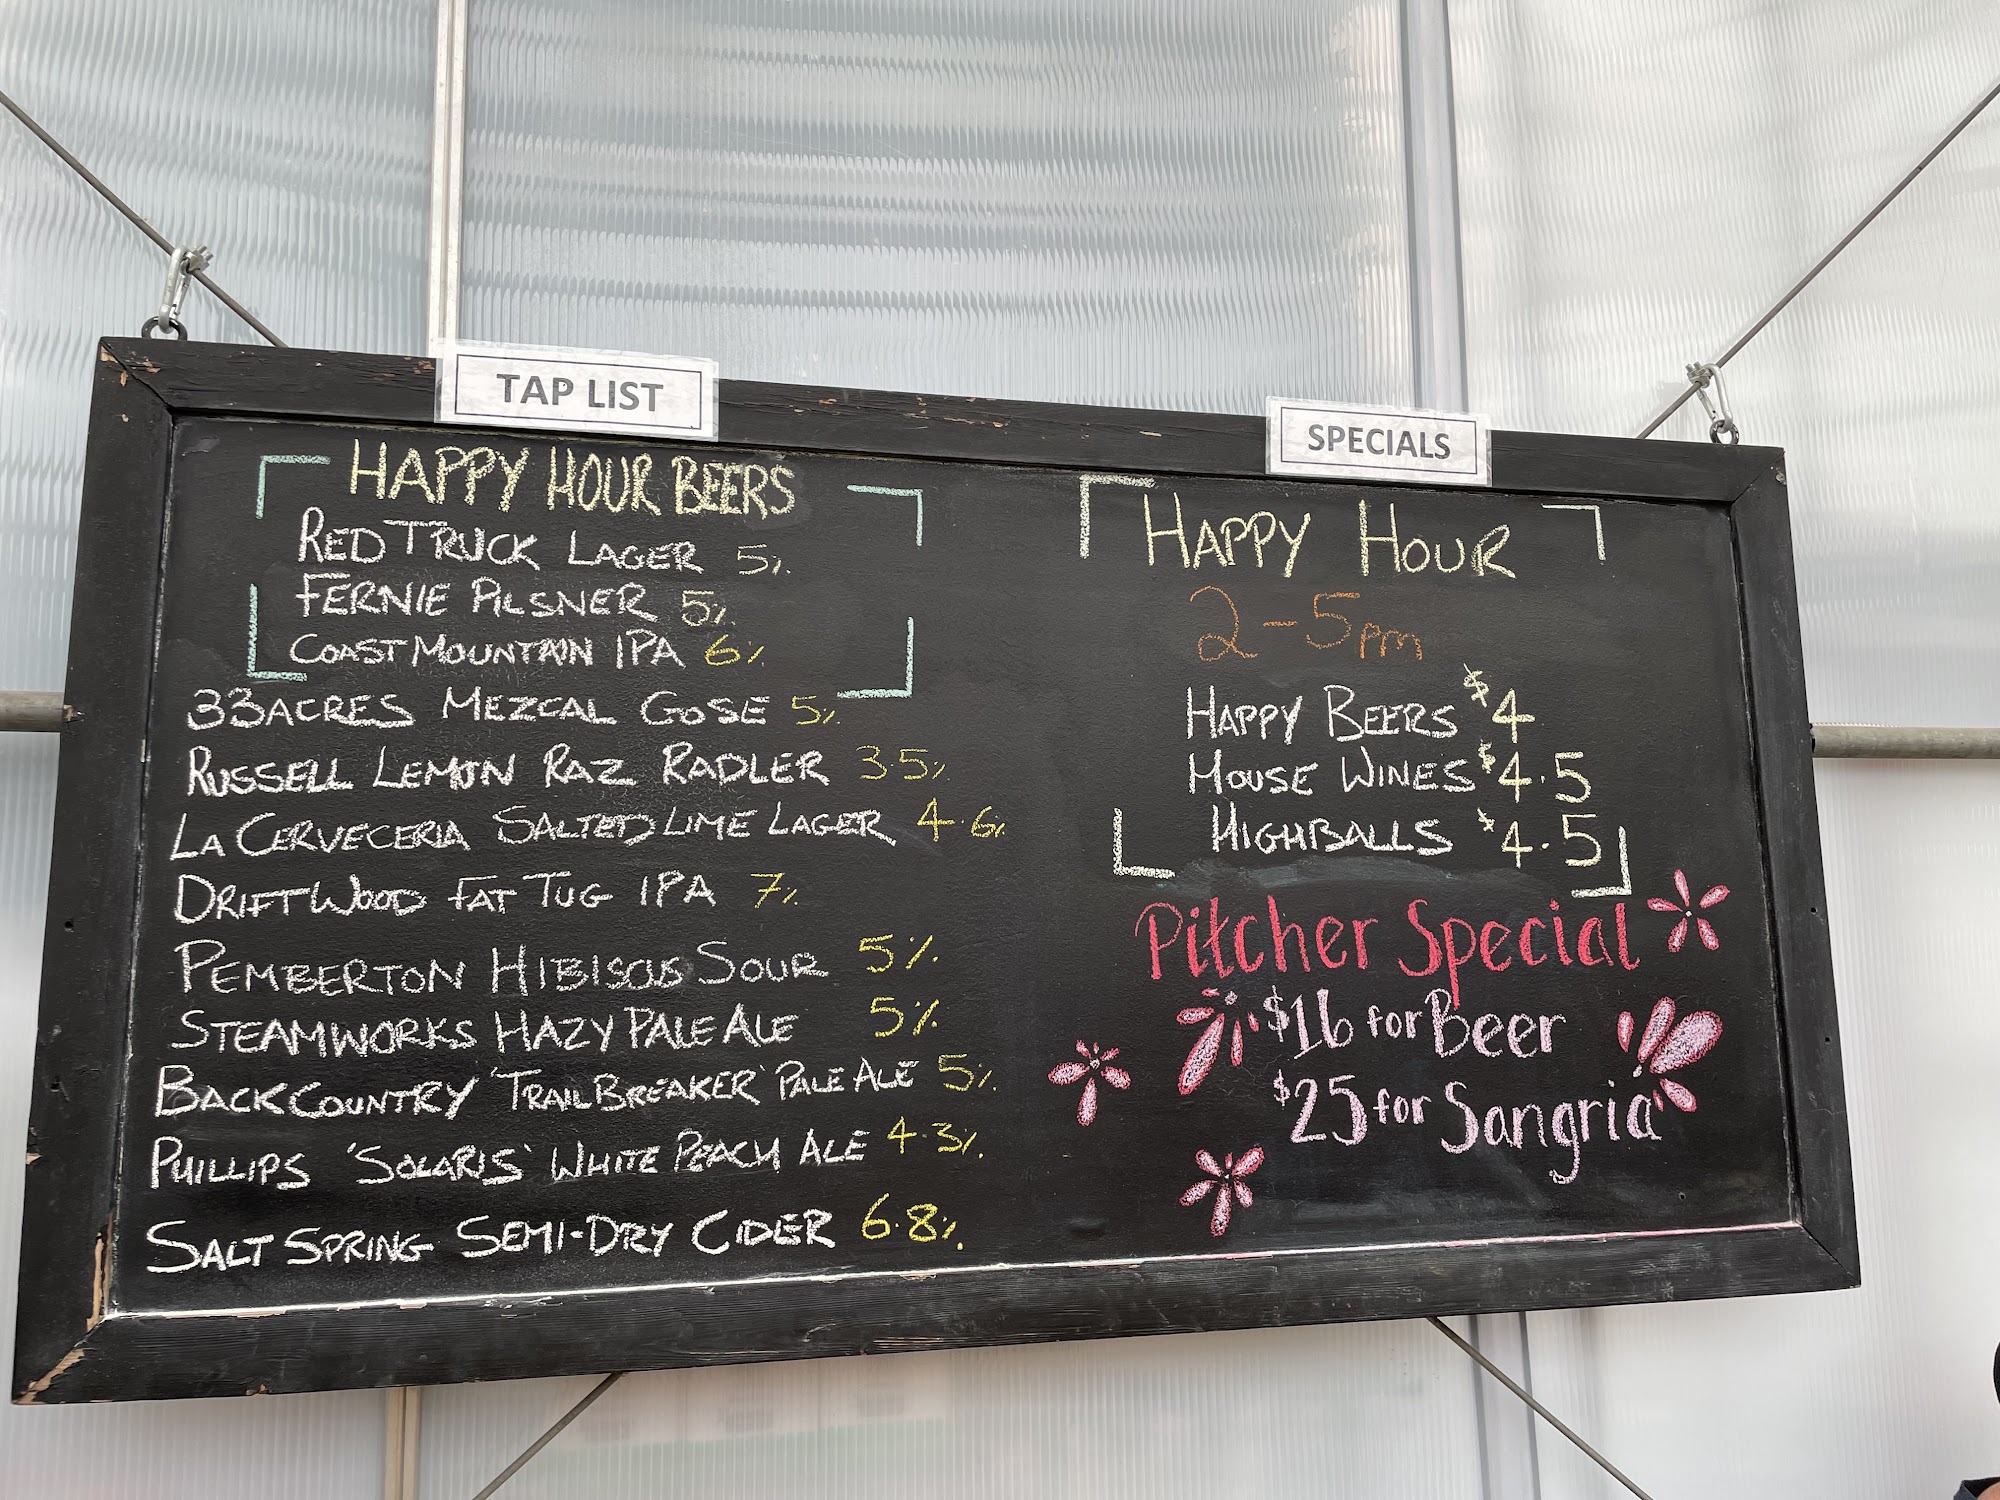 TAP LIST
HAPPY HOUR BEERS
RED TRUCK LAGER 5%
FERNIE PILSNER 5%
COAST MOUNTAIN IPA 6%
33 ACRES MEZCAL GOSE 5%
RUSSELL LEMON RAZ RADLER 3.5%
LA CERVECERIA SALTED LIME LAGER 4.6%
DRIFTWOOD FAT TUG IPA 7%
PEMBERTON HIBISCUS SOUR 5%
STEAMWORKS HAZY PALE ALE 5%
BACKCOUNTRY 'TRAILBREAKER' PALE ALE 5%
PHILLIPS 'SOLARIS' WHITE PEACH ALE 4.3%
SALT SPRING SEMI-DRY CIDER 6.8%
SPECIALS
HAPPY HOUR
2-5pm
HAPPY BEERS $4
HOUSE WINES $4.5
HIGHBALLS $4.5
Pitcher Special
$16 for Beer
$25 for Sangria